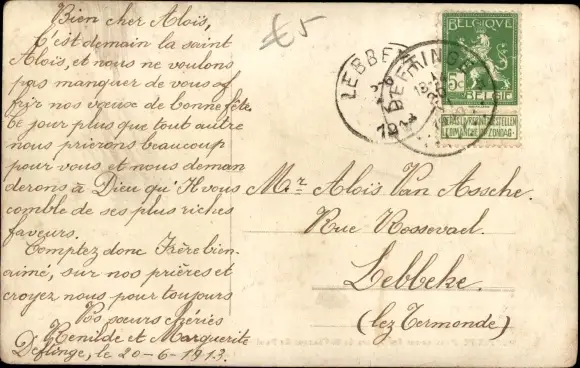 Bien cher Aloïs,
C'est demain la saint
Aloïs, et nous ne voulons
pas manquer de vous of
frir nos vœux de bonne fête.
Ce jour plus que tout autre
nous prierons beaucoup
pour vous et nous deman
derons à Dieu qu'Il vous
comble de ses plus riches
faveurs.
Comptez donc Frère bien-
aimé, sur nos prières et
croyez nous pour toujours
Vos sœurs chéries
Renilde et Marguerite
Deftinge, le 20-6-1913.
£5
LEBBEKE
DEFTINGE
BELGIQUE
5c
BELGIË
NE PAS LIVRER LE DIMANCHE
NIET BESTELLEN OP ZONDAG
Mr. Aloïs Van Assche.
Rue Rossevad.
Lebbeke.
(lez Termonde)